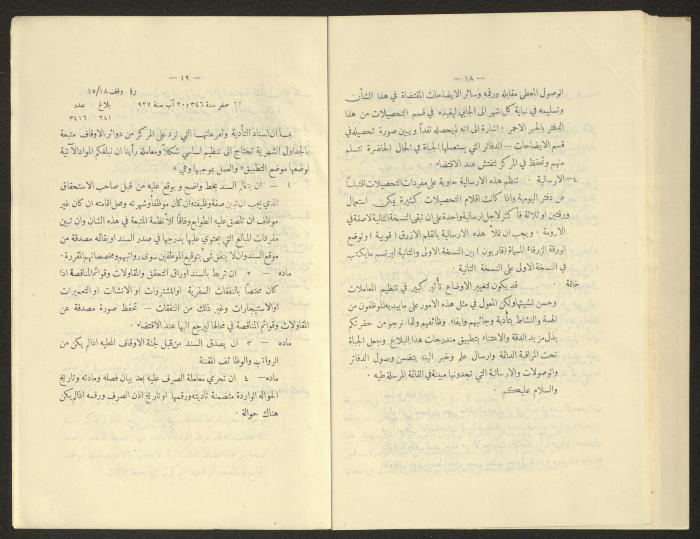 — ١٨ —
الوصول المعطى مقابله ورقمه وسائر الايضاحات المقتضاة في هذا الشأن
وتسليمه في نهاية كل شهر الى الجابي ليقيده في قسم التحصيلات من هذا
الدفتر بالحبر الاحمر اشارة الى انه لم يحصله نقداً ويبين صورة تحصيله في
قسم الايضاحات — الدفاتر التي يستعملها الجباة في الحال الحاضرة تستلم
منهم وتحفظ في المركز لتفتش عند الاقتضاء ٠
٤ — الارسالية ٠ تنظم هذه الارسالية حاوية على مفردات التحصيلات اقتباساً
عن دفتر اليومية واذا كانت اقلام التحصيلات كثيرة يمكن استعمال
ورقتين او ثلاثة فأكثر لاجل ارسالية واحدة على ان تبقى النسخة الثانية لاصقة في
الارومة ٠ ويجب ان تملأ هذه الارسالية بالقلم الازرق ( قوبية ) وتوضع
الورقة الزرقاء المسماة ( قاربون ) بين النسخة الاولى والثانية ليرتسم ما يكتب
في النسخة الاولى على النسخة الثانية ٠
خاتمة ٠ قد يكون لتغيير الاوضاع تأثير كبير في تنظيم المعاملات
وحسن تمشيتها ولكن المعول في مثل هذه الامور على ما يبديه الموظفون من
الهمة والنشاط بتأدية وجائبهم وايفاء وظائفهم ولذا نرجو من حضرتكم
بذل مزيد الدقة والاعتناء بتطبيق مندرجات هذا البلاغ وجعل الجباة
تحت المراقبة الدائمة وارسال علم وخبر الينا يتضمن وصول الدفاتر
والوصولات والارسالية التي تجدونها مبينة في القائمة المرسلة طيه ٠
والسلام عليكم ٠
— ١٩ —
رقم وقف ١٥/١٨
٢٢ صفر سنة ٣٤٦ و ٢٠ آب سنة ٩٢٧ بلاغ عدد
٢٨١ ٣٤١٦
بما أن اسناد التأدية وتفرعاتها التي ترد على المركز من دوائر الاوقاف متبعة
بالجداول الشهرية تحتاج الى تنظيم اساسي شكلاً ومعاملة رأينا ان نبلغكم المواد الآتية
لوضعها موضع التطبيق والعمل بموجبها وهي ٠
١ — ان ينظم السند بخط واضح ويوقع عليه من قبل صاحب الاستحقاق
الذي يجب ان تبين صفة وظيفته ان كان موظفاً وشهرته ومحل اقامته ان كان غير
موظف ان تلصق عليه الطوابع وفاقاً للأنظمة المتبعة في هذه الشان وان تبين
مفردات المبالغ التي يحتوي عليها بدرجها في صدر السند او بقائمه مصدقة من
موقع السند وان لا ينفق شي بتوقيع الموظفين سوى رواتبهم ومخصصاتهم المقررة ٠
ماده — ٢ ان تربط بالسند اوراق التحقق والمقاولات وقوائم المناقصة اذا
كان مختصاً بالنفقات السفرية او المشتروات او الانشاآت او التعميرات
او الاستيجارات وغير ذلك من النفقات — تحفظ صورة مصدقة عن
المقاولات وقوائم المناقصة في محالها ليرجع اليها عند الاقتضاء ٠
ماده — ٣ ان يصدق السند من قبل لجنة الاوقاف المحلية اذا لم يكن من
الرواتب والوظائف المقننة
ماده — ٤ ان تجري معاملة الصرف عليه بعد بيان فصله ومادته وتاريخ
الحوالة الواردة متضمنة تأديته ورقمها او تاريخ اذن الصرف ورقمه اذا لم يكن
هناك حوالة ٠